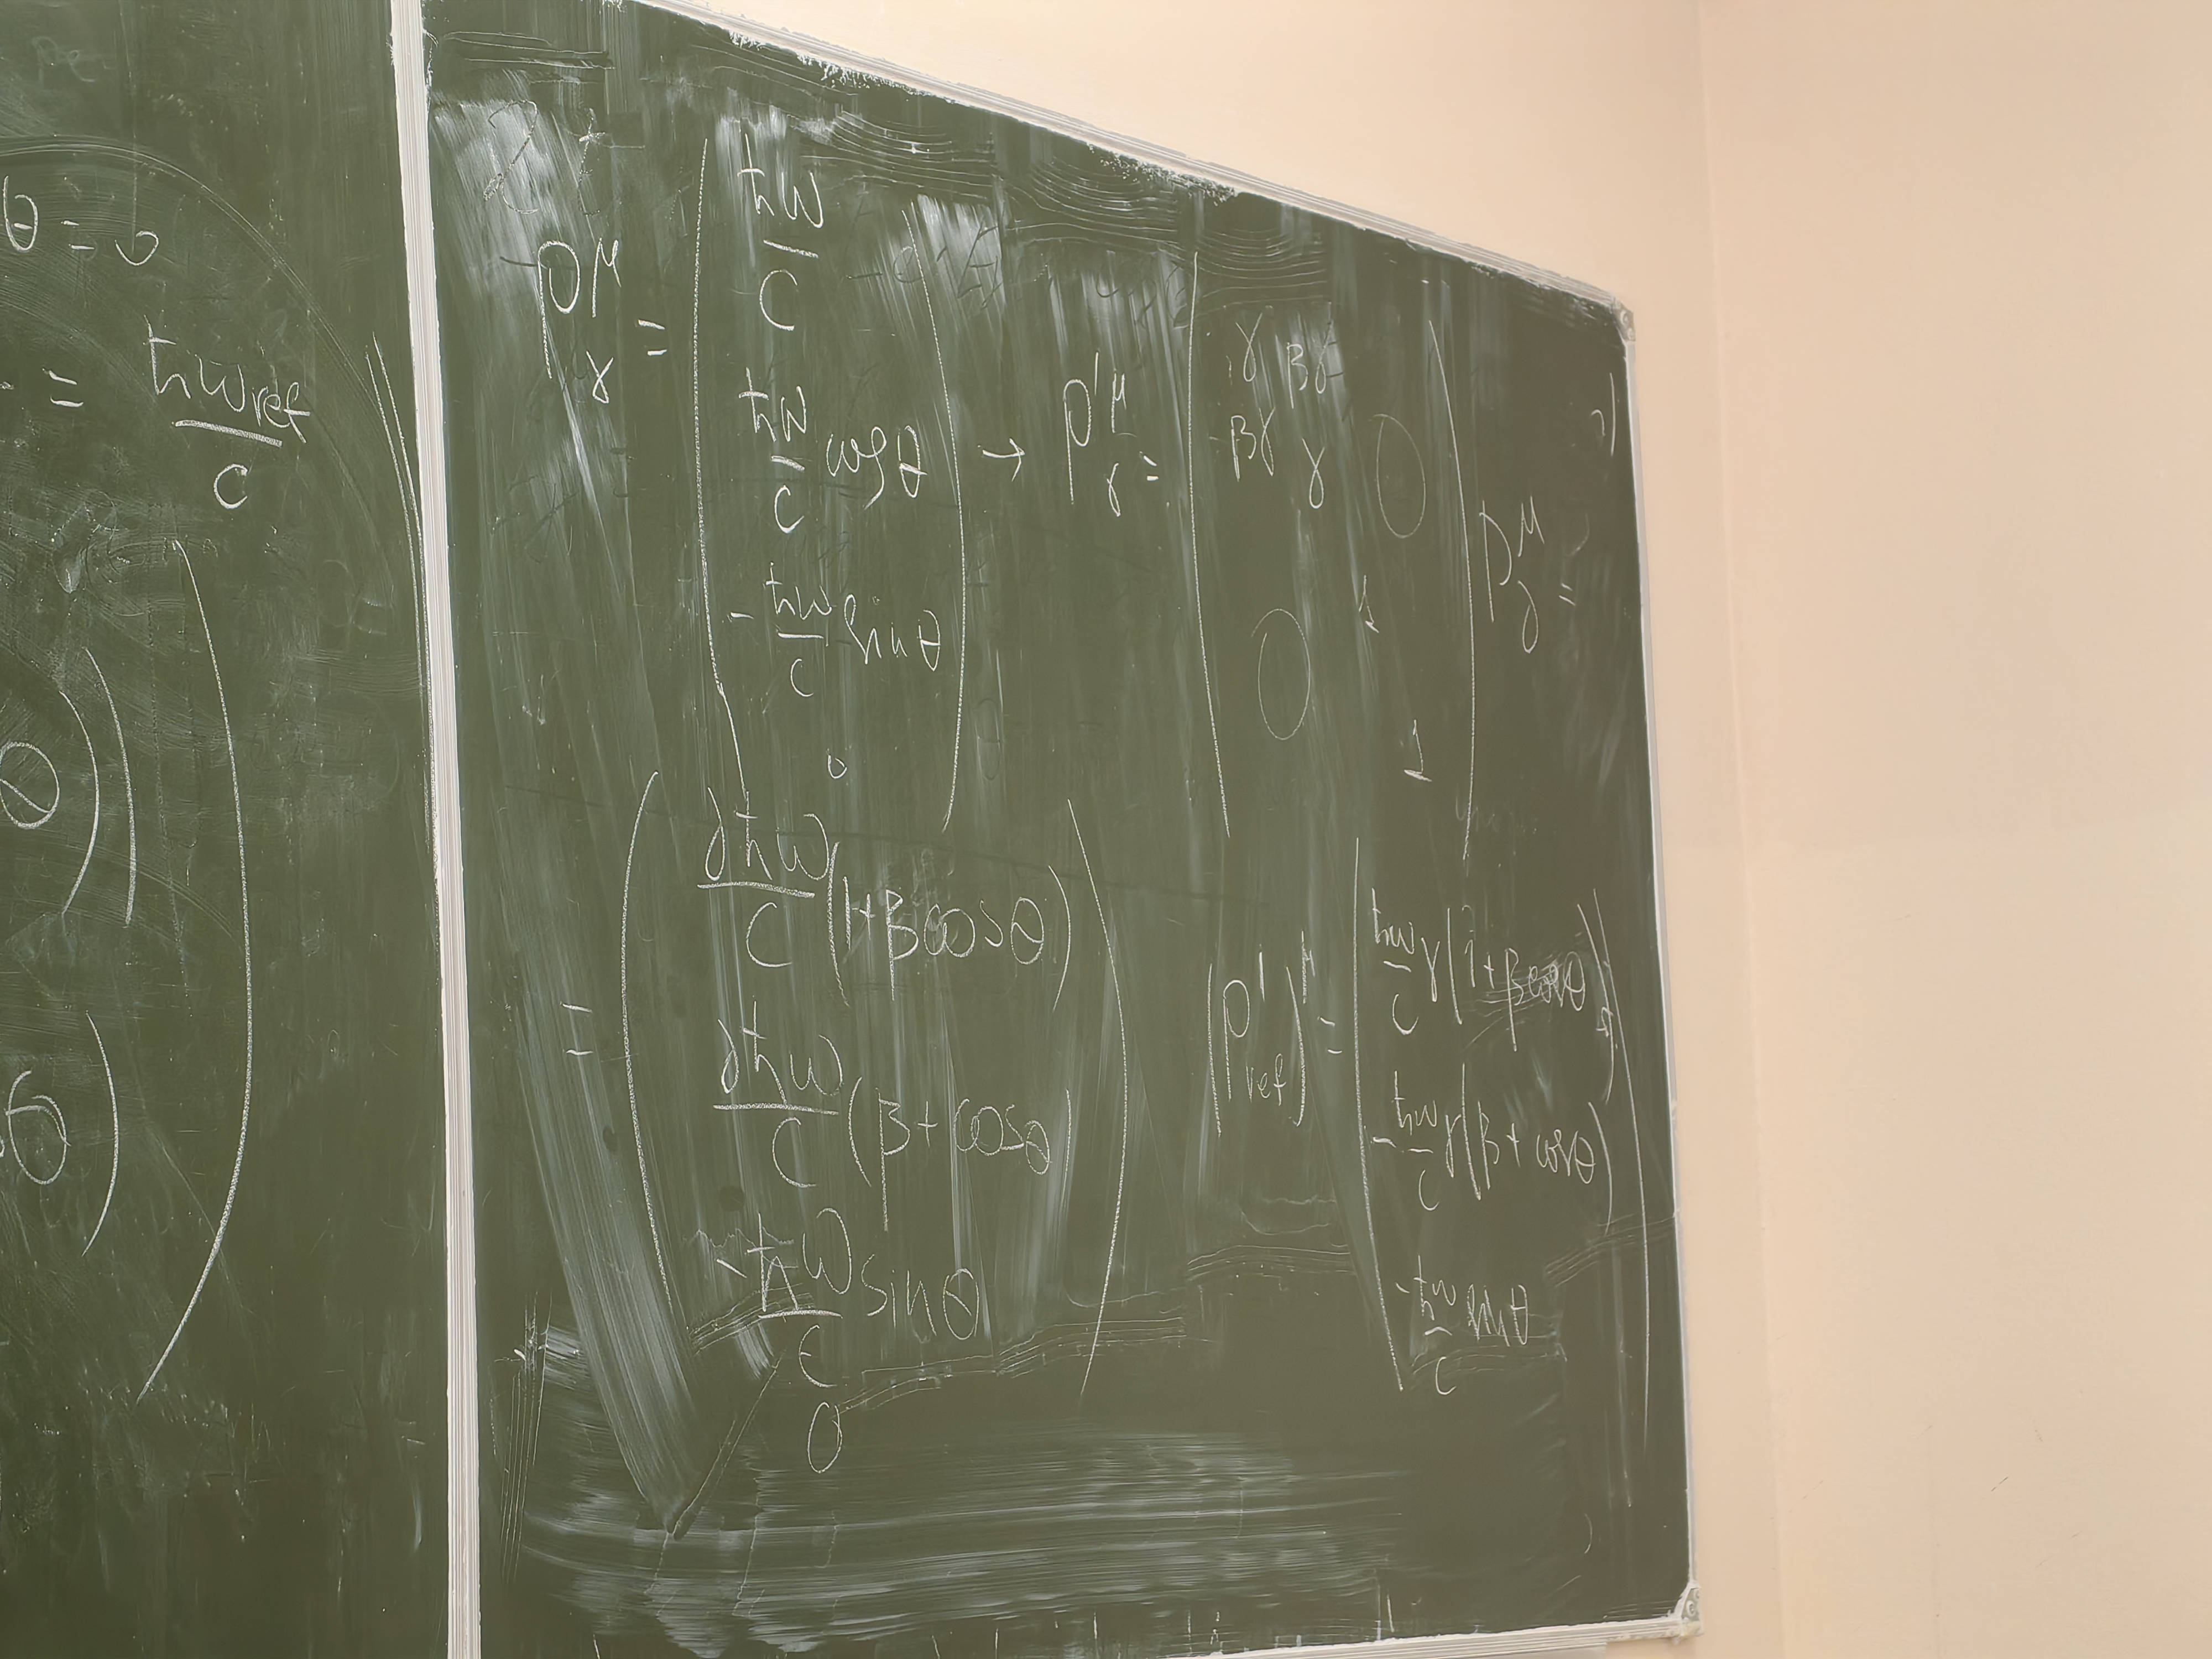 θ = 0
= ħω_ref / c
p^μ_γ = ( ħω/c
ħω/c cosθ
- ħω/c sinθ
0 ) → p'^μ_γ = ( γ βγ
βγ γ 0
0 1
1 ) p^μ_γ =
= ( γħω/c (1+βcosθ)
γħω/c (β+cosθ)
- ħω/c sinθ
0 )
(p'_ref)^μ = ( ħω/c γ(1+βcosθ)
- ħω/c γ(β+cosθ)
- ħω/c sinθ )